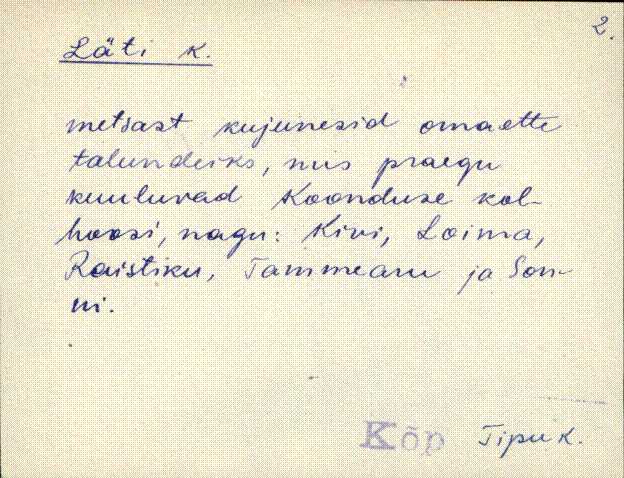 2.
Läti k.
metsast kujunesid omaette
talundeiks, mis praegu
kuuluvad Koonduse kol-
hoosi, nagu: Kivi, Loima,
Raistiku, Tammearu ja Son-
ni.
Kõp Tipu k.